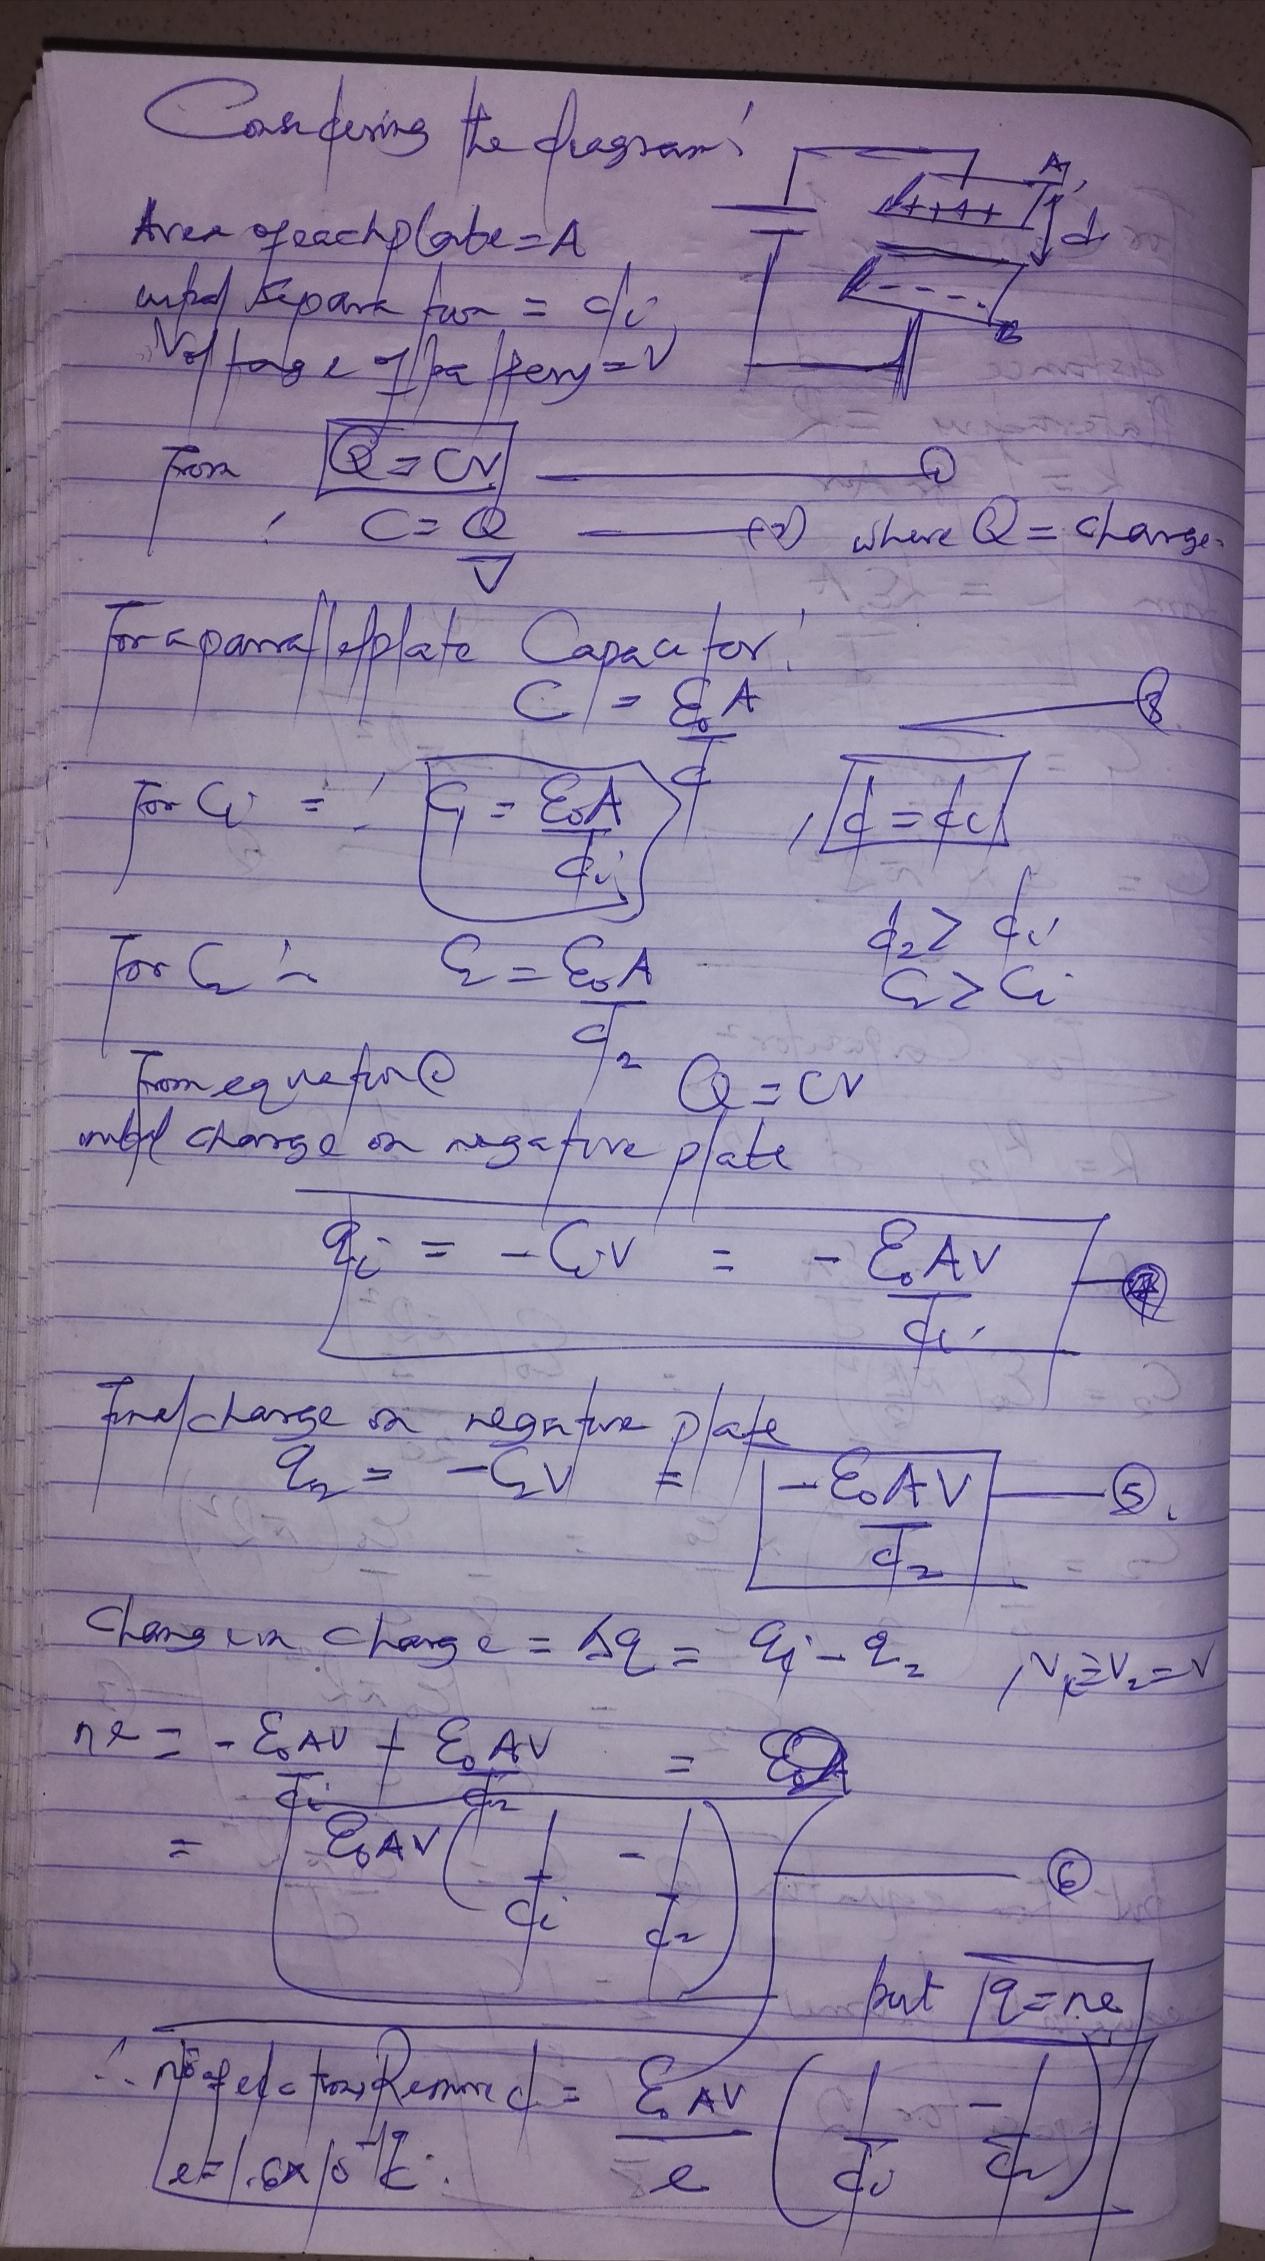 Considering the diagram:
A
d
B
Area of each plate = A
initial separation = di
Voltage of battery = V
From Q = CV ——— ①
∴ C = Q/V ——— (2) where Q = charge.
For a parallel plate Capacitor:
C = ε₀A/d ——— 3
For Ci = ∴ Ci = ε₀A/di , d = di
d₂ > di
For C₂ :- C₂ = ε₀A/d₂ C₂ > Ci
From equation Q = CV
initial charge on negative plate
qi = -CiV = -ε₀AV/di ——— 4
Final charge on negative plate
q₂ = -C₂V = -ε₀AV/d₂ ——— ⑤
Change in charge = Δq = qi - q₂ , Vi = V₂ = V
ne = -ε₀AV/di + ε₀AV/d₂ =
= ε₀AV (1/di - 1/d₂) ——— ⑥
but q = ne
∴ No of electrons Removed = ε₀AV/e (1/di - 1/d₂)
e = 1.6x10⁻¹⁹C.